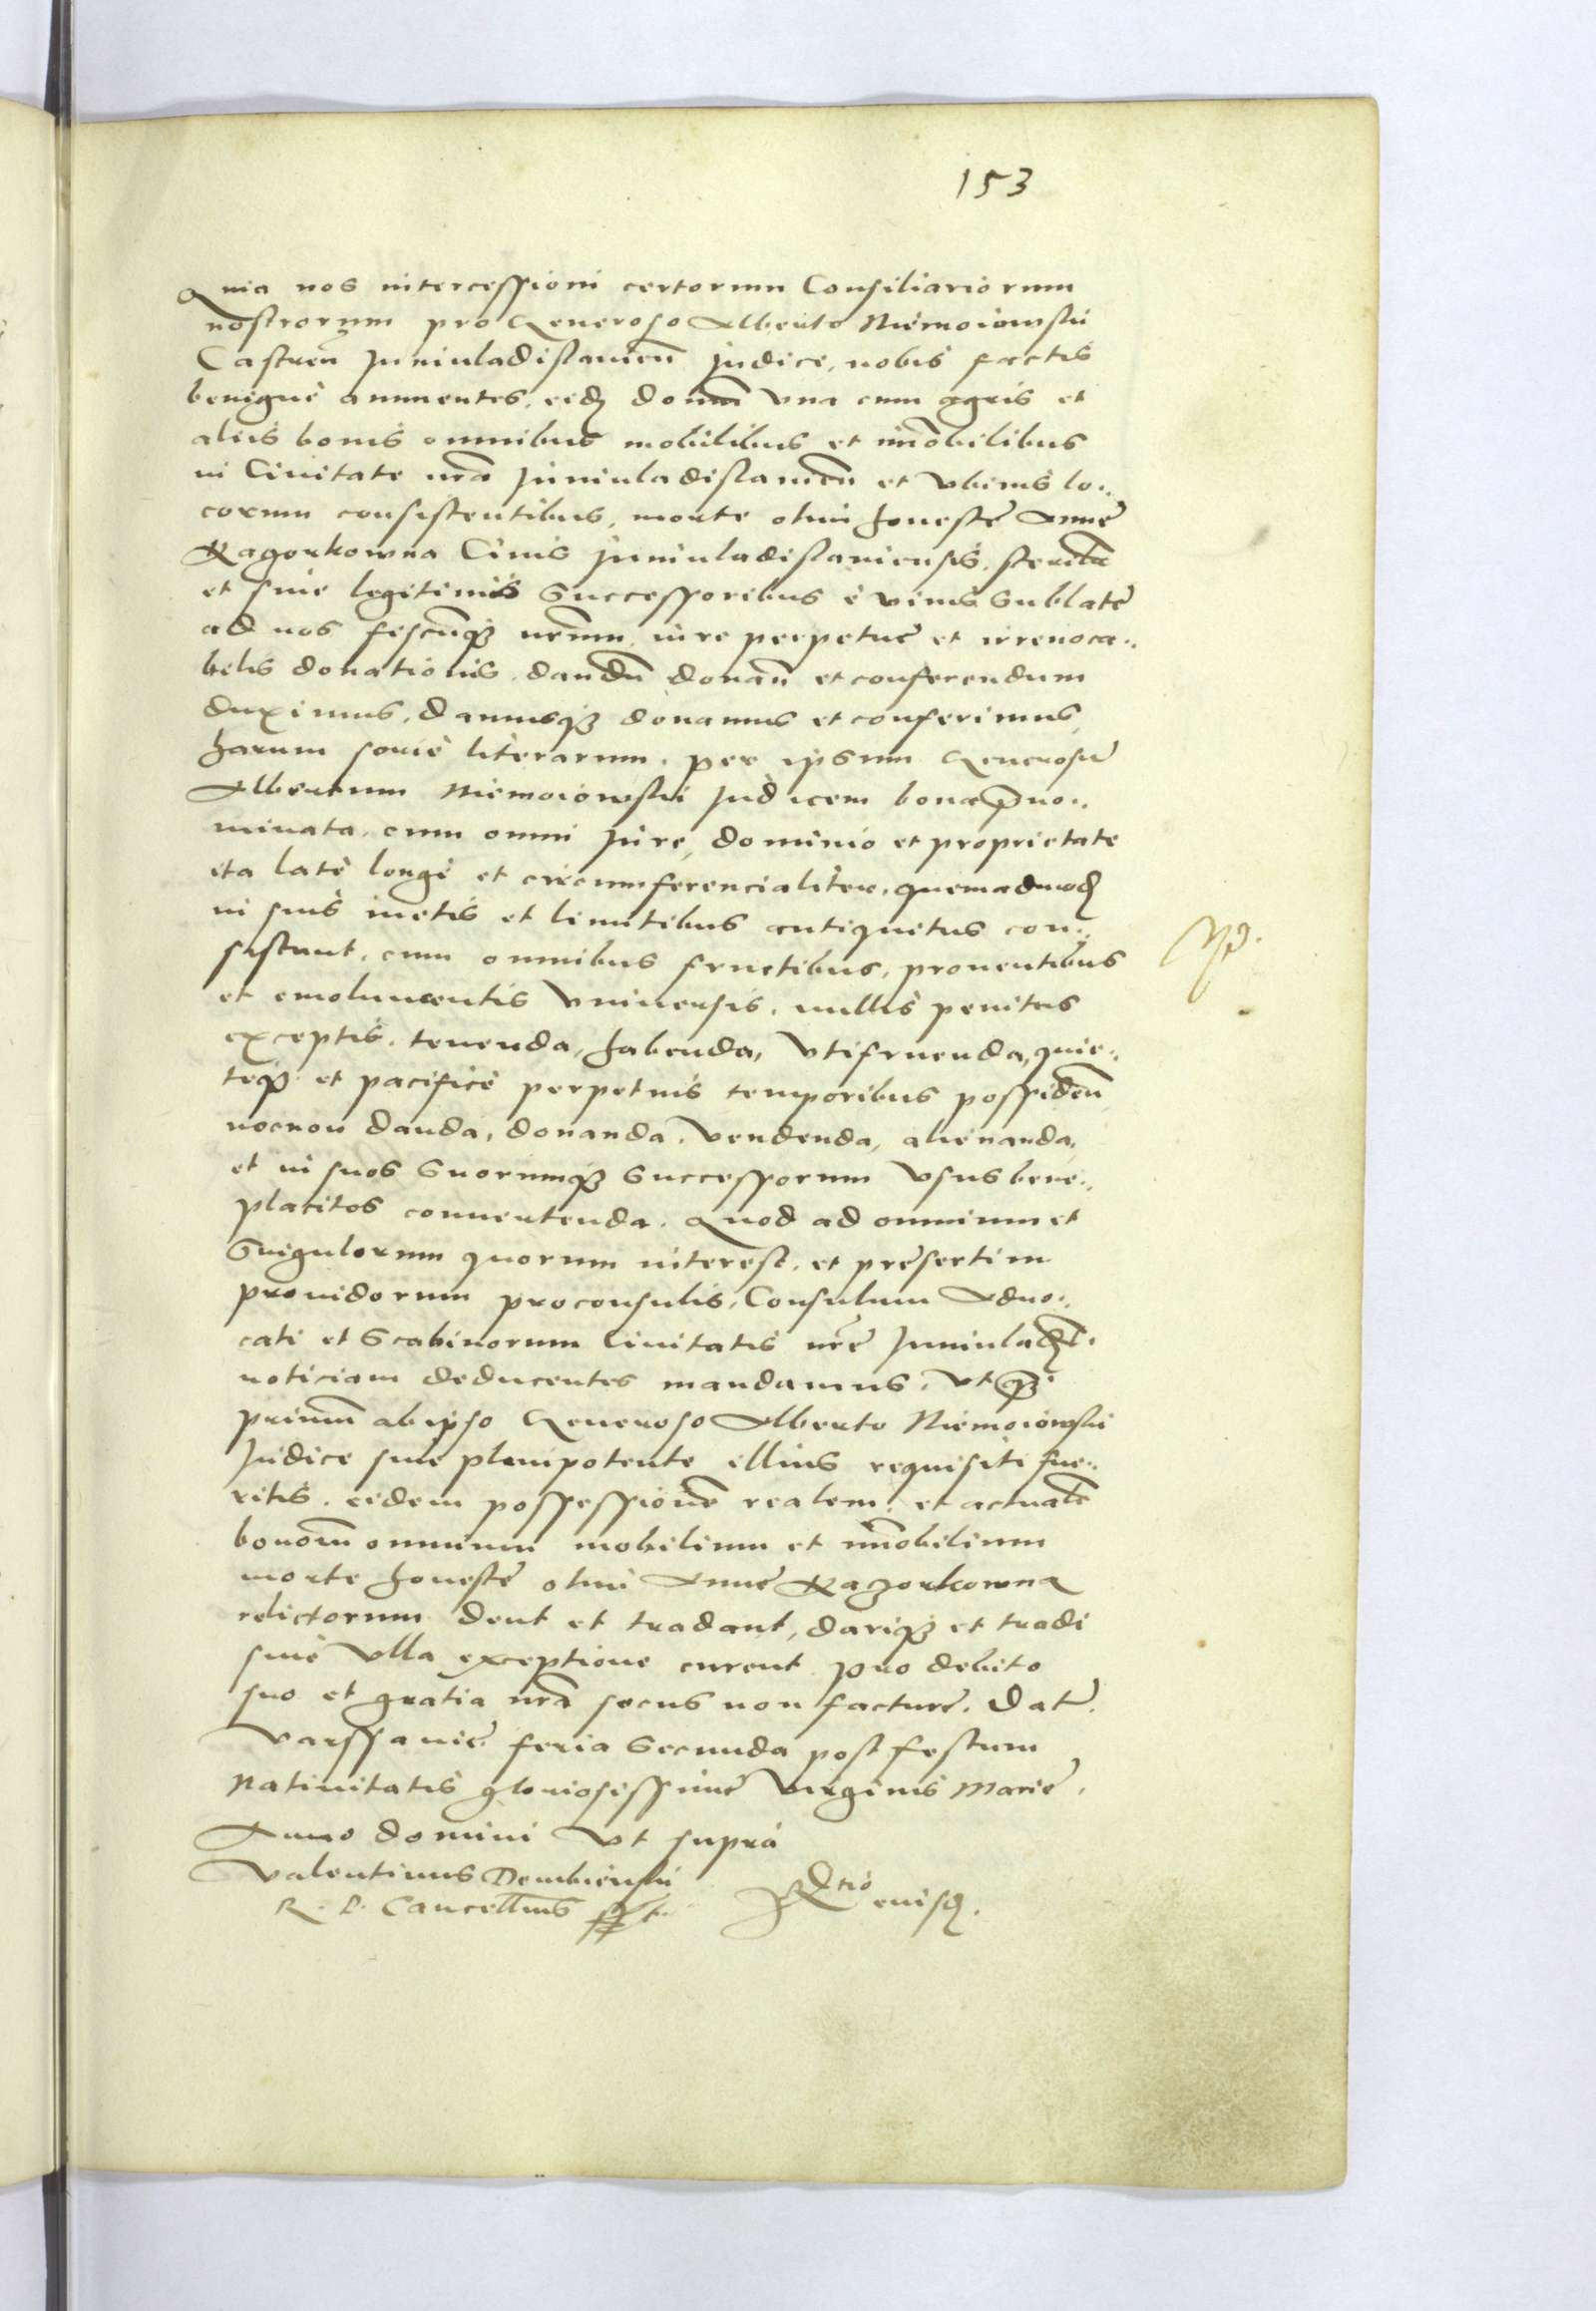 153
Quia nos intercessioni certorum Consiliariorum
nostrorum pro Generoso Alberto Niemoiowskii
Castren̄ Juniuladislauien̄ Judice, nobis factis
benignè annuentes, eidē domū vna cum agris et
aliis bonis omnibus mobilibus et im̄obilibus
in Ciuitate nrā Juniuladislauien̄ et vbiuis lo..
corum consistentibus, morte olim honestę Annę
Ragorkowna Ciuis Juniuladislauiensis, sterilis
et sine legitimis Successoribus è viuis Sublatę
ad nos fiscumq3 nrūm, iure perpetuę et irreuoca..
bilis donationis, dandū donan̄ et conferendum
duximus, damusq3 donamus et conferimus,
harum serie literarum. per ipsum Generosū
Albertum Niemoiowskii Judicem bona p̄no..
minata, cum omni Jure, dominio et proprietate
ita latè longè et circumferencialiter, quemadmodū
in suis metis et limitibus antiquitus con..
sistunt, cum omnibus fructibus, prouentibus
et emolumentis vniuersis, nullis penitus
exceptis, tenenda, habenda, vtifruenda, quie..
teq3 et pacificè perpetuis temporibus possiden̄
necnon danda, donanda, vendenda, alienanda,
et in suos Suorumq3 Successorum vsus bene..
placitos conuertenda. Quod ad omnium et
Singulorum quorum interest, et presertim
prouidorum proconsulis, Consulum Aduo..
cati et Scabinorum Ciuitatis nrē Juniuladisl.
noticiam deducentes mandamus, vt q̄3
primū ab ipso Generoso Alberto Niemoiowskii
Judice siuè plenipotente illius requisiti fue..
ritis, eidem possessionē realem et actualē
bonorū omnium mobilium et im̄obilium
morte honestę olim Annę Ragorkowna
relictorum dent et tradant, dariq3 et tradi
sinè vlla exceptione curent pro debito
suo et gratia nrā secus non facturi. Datē.
Varssauię feria Secunda post festum
Natiuitatis gloriosissimę virginis Marię,
Anno domini vt suprà
Valentinus Dembienskii
R. P. Cancellrius sst
Rtio eiusdē.